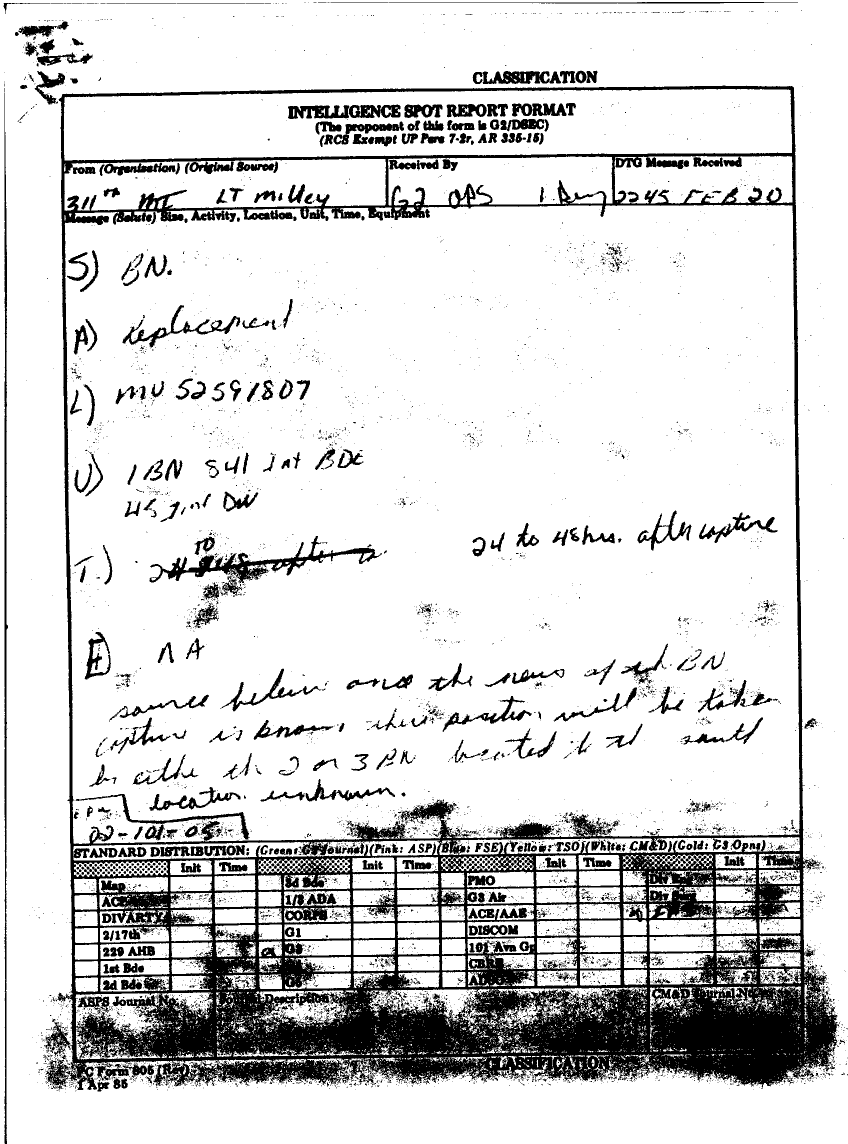 CLASSIFICATION
INTELLIGENCE SPOT REPORT FORMAT
(The proponent of this form is G2/DSEC)
(RCS Exempt UP Para 7-2r, AR 335-15)
From (Organization) (Original Source) Received By DTG Message Received
311th MI LT Milley G2 OPS 2245 FEB 20
Message (Salute) Size, Activity, Location, Unit, Time, Equipment
S) BN.
A) Replacement
L) MU 52591807
U) 1 BN 841 Inf BDE
45 Inf Div
T.) 24 to 48 hrs. after capture
E) NA
source believe once the news of the BN
capture is known, their position will be taken
by either the 2 or 3 BN located to the south
location unknown.
02-101-05
STANDARD DISTRIBUTION: (Green: G2 Journal)(Pink: ASP)(Blue: FSE)(Yellow: TSO)(White: CM&D)(Gold: G3 Opns)
Init Time Init Time Init Time Init Time
Map 3d Bde PMO
ACE 1/3 ADA G3 Air
DIVARTY CORPS ACE/AAE
2/17th G1 DISCOM
229 AHB G3 101 Avn Gp
1st Bde
2d Bde G5
ASPS Journal No. Journal Description CM&D Journal No.
FC Form 805 (Rev) CLASSIFICATION
1 Apr 85